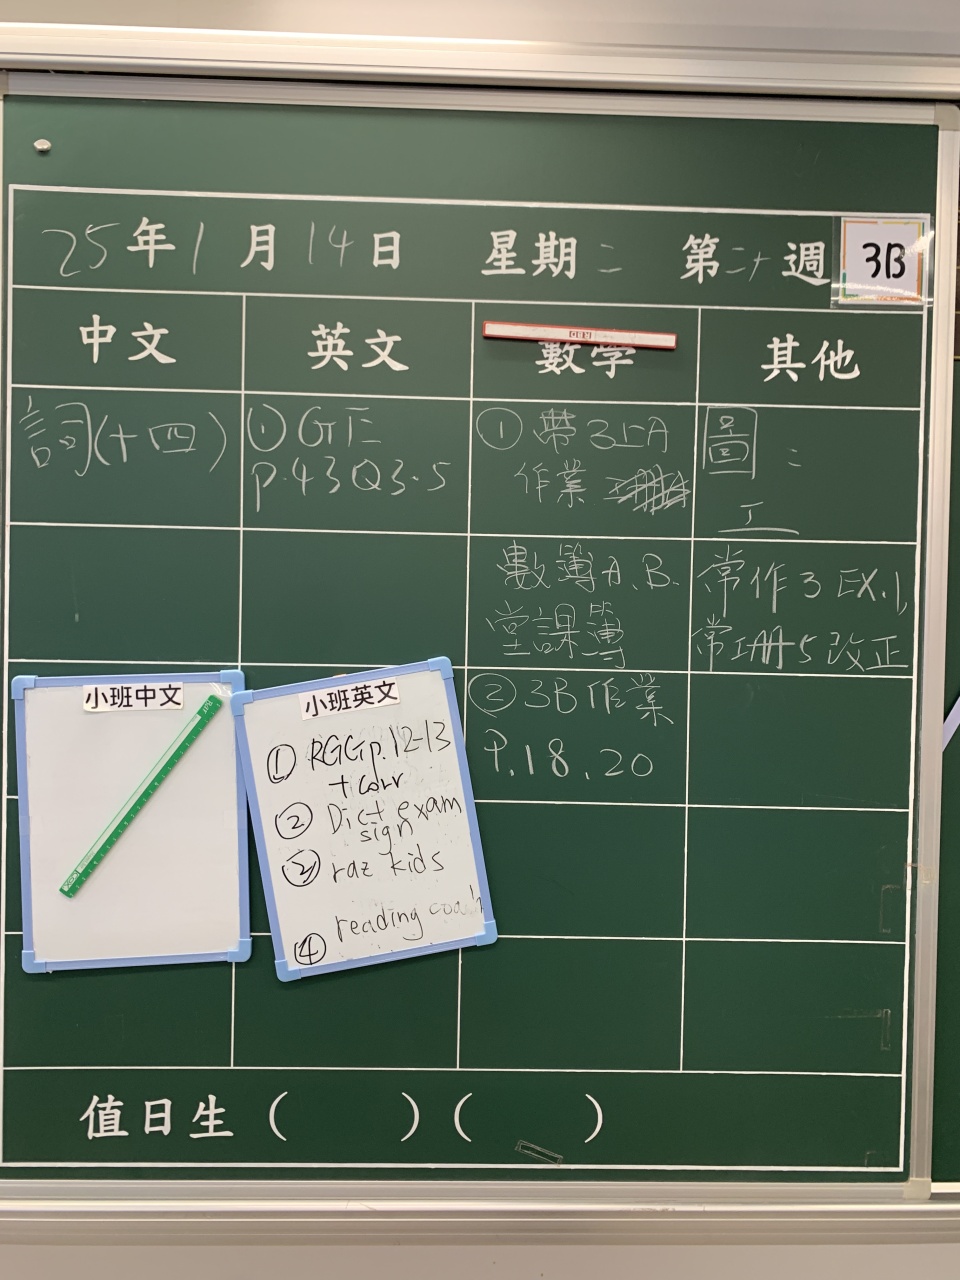 25年1月14日 星期二 第二十週 3B
中文 英文 數學 其他
詞(十四)
① GE
p.43Q3.5
① 帶3上A
作業
數簿A.B.
堂課簿
② 3B作業
P.18.20
圖:
工
常作3 EX.1,
常冊5改正
小班中文
小班英文
① RGG p.12-13
+ corr
② Dict exam
sign
③ raz kids
④ reading coach
值日生 ( ) ( )